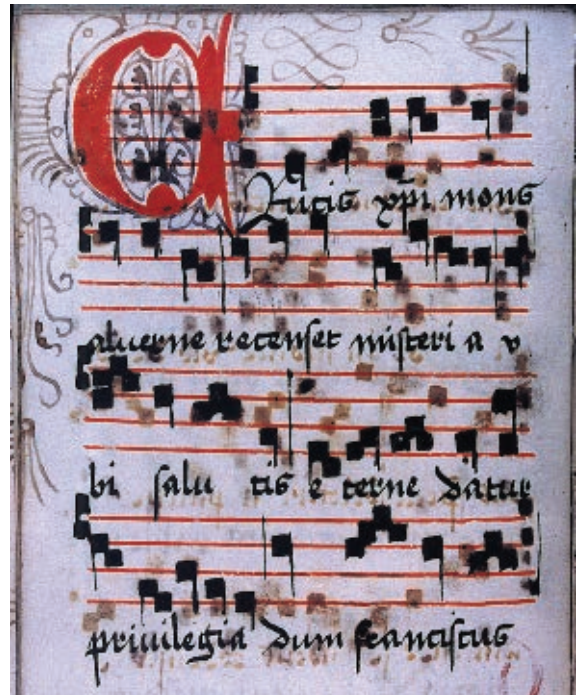 Crucis xp̄i mons
aluerne recenset misteri a v
bi salu tis e terne datur
priuilegia dum franciscus